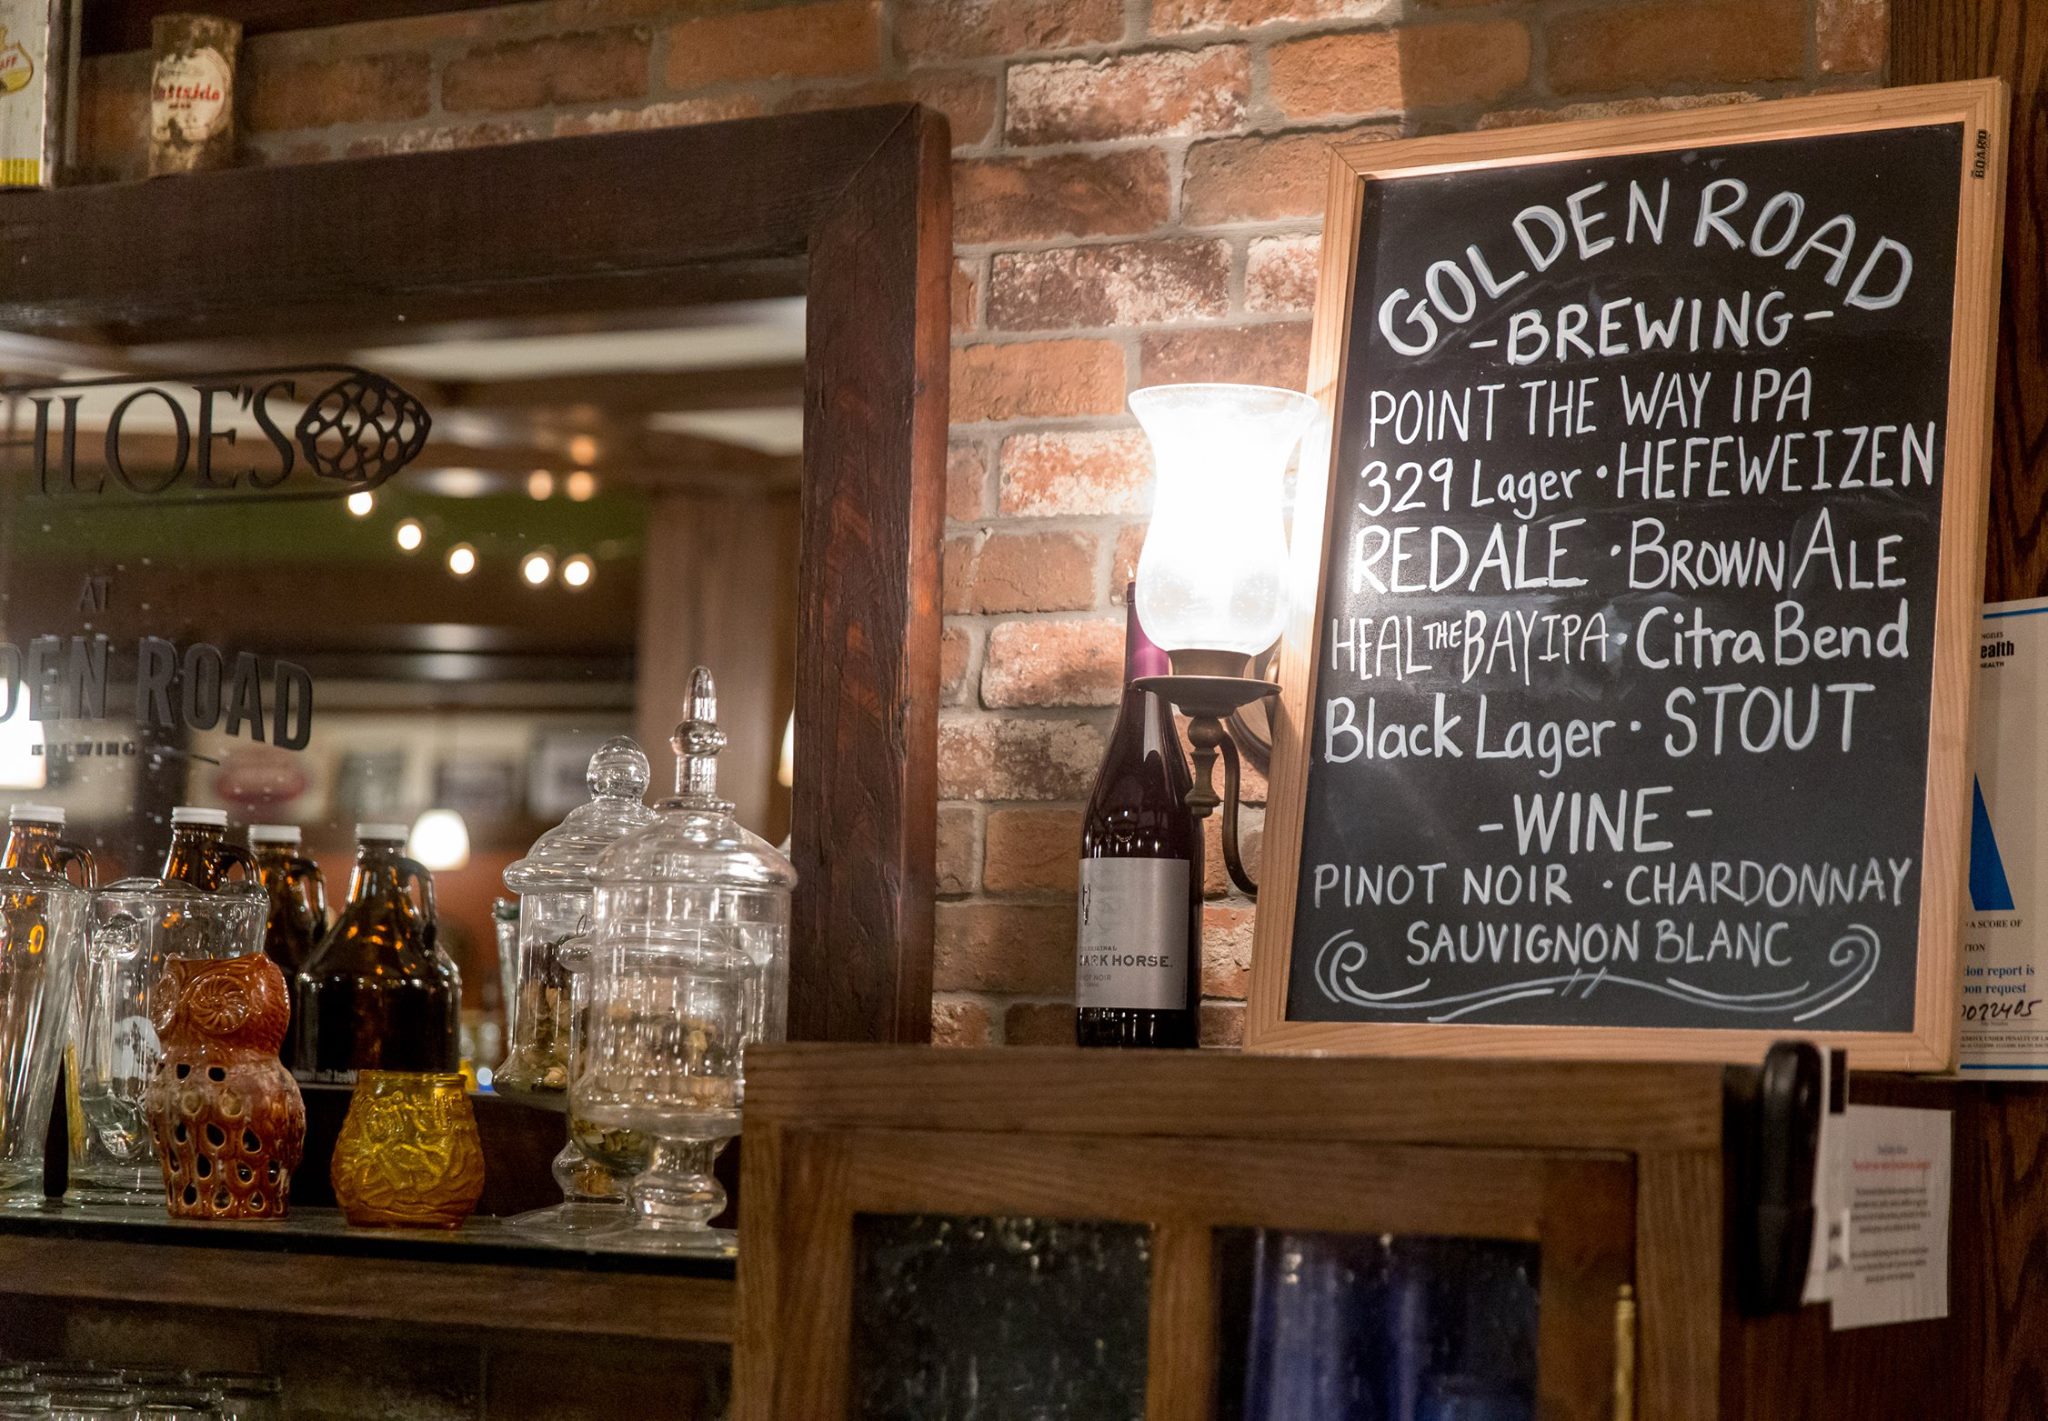 GOLDEN ROAD
-BREWING-
POINT THE WAY IPA
329 Lager · HEFEWEIZEN
RED ALE · BROWN ALE
HEAL THE BAY IPA · Citra Bend
Black Lager · STOUT
-WINE-
PINOT NOIR · CHARDONNAY
SAUVIGNON BLANC
BOARD
ILOE'S
AT
DEN ROAD
BREWING
ARK HORSE.
NOT NOIR
ealth
HEALTH
A SCORE OF
TION
tion report is
pon request